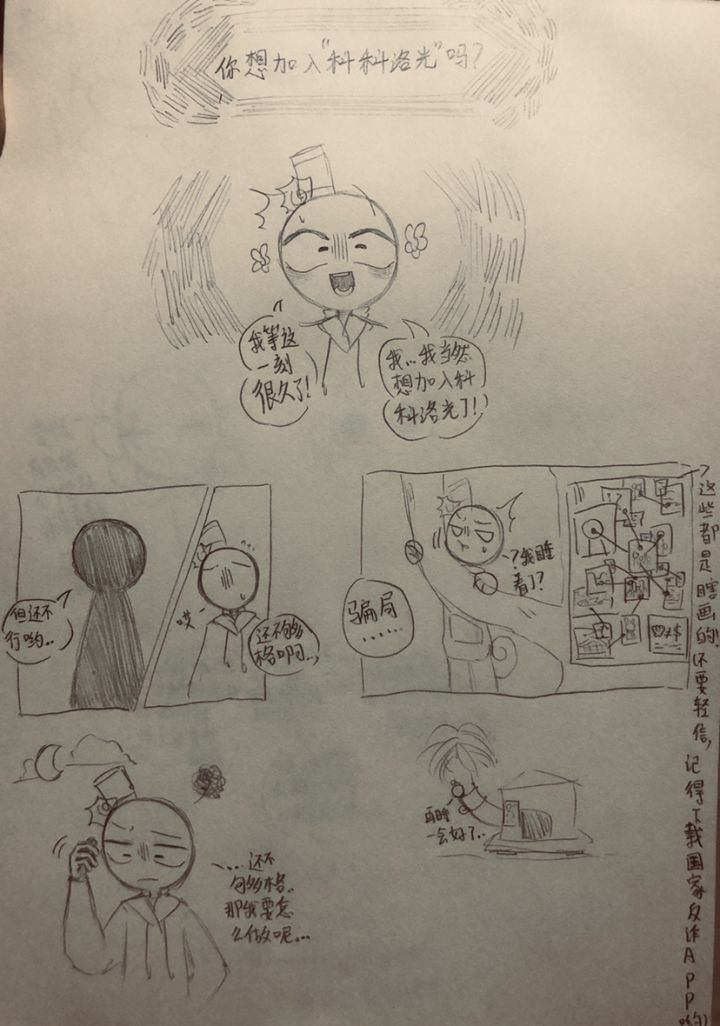 你想加入"科科洛光"吗?
我等这
一刻
很久了!
我...我当然
想加入科
科洛光了!
但还不
行哟..
哎
还不够
格啊...
骗局
......
?我睡
着了?
这些都是瞎画的!不要轻信,记得下载国家反诈APP哟!
....还不
够格..
那我要怎
么做呢...
再睡
一会好了..